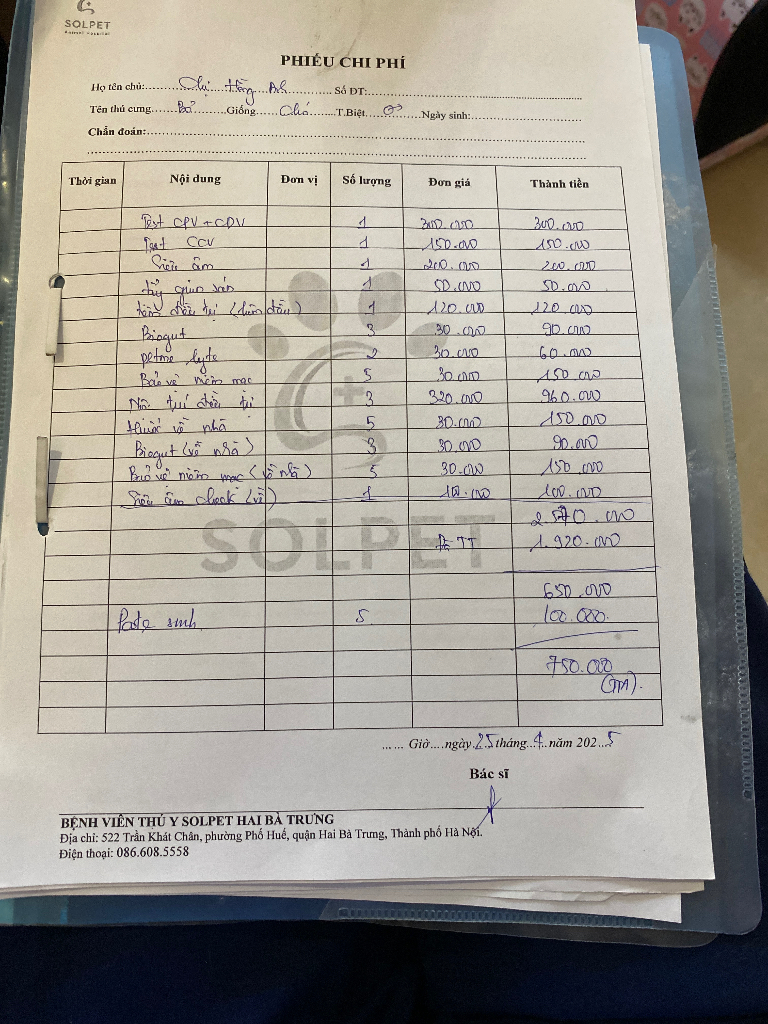 SOLPET
Animal Hospital
PHIẾU CHI PHÍ
Họ tên chủ: Chị Hồng Anh Số ĐT:
Tên thú cưng Giống Chó T.Biệt ♂ Ngày sinh:
Chẩn đoán:
Thời gian Nội dung Đơn vị Số lượng Đơn giá Thành tiền
Test CPV + CDV 1 300.000 300.000
Test CCV 1 150.000 150.000
Siêu âm 1 200.000 200.000
tẩy giun sán 1 50.000 50.000
tiêm điều trị (lần đầu) 1 120.000 120.000
Biogut 3 30.000 90.000
petme lyte 2 30.000 60.000
Bảo vệ niêm mạc 5 30.000 150.000
Nội trú điều trị 3 320.000 960.000
thuốc về nhà 5 30.000 150.000
Biogut (về nhà) 3 30.000 90.000
Bảo vệ niêm mạc (về nhà) 5 30.000 150.000
Siêu âm check (về) 1 100.000 100.000
SOLPET
2.570.000
Đã TT 1.920.000
650.000
Pate sinh 5 100.000
750.000
(TM).
Giờ ngày 25 tháng 4 năm 2025
Bác sĩ
BỆNH VIỆN THÚ Y SOLPET HAI BÀ TRƯNG
Địa chỉ: 522 Trần Khát Chân, phường Phố Huế, quận Hai Bà Trưng, Thành phố Hà Nội.
Điện thoại: 086.608.5558